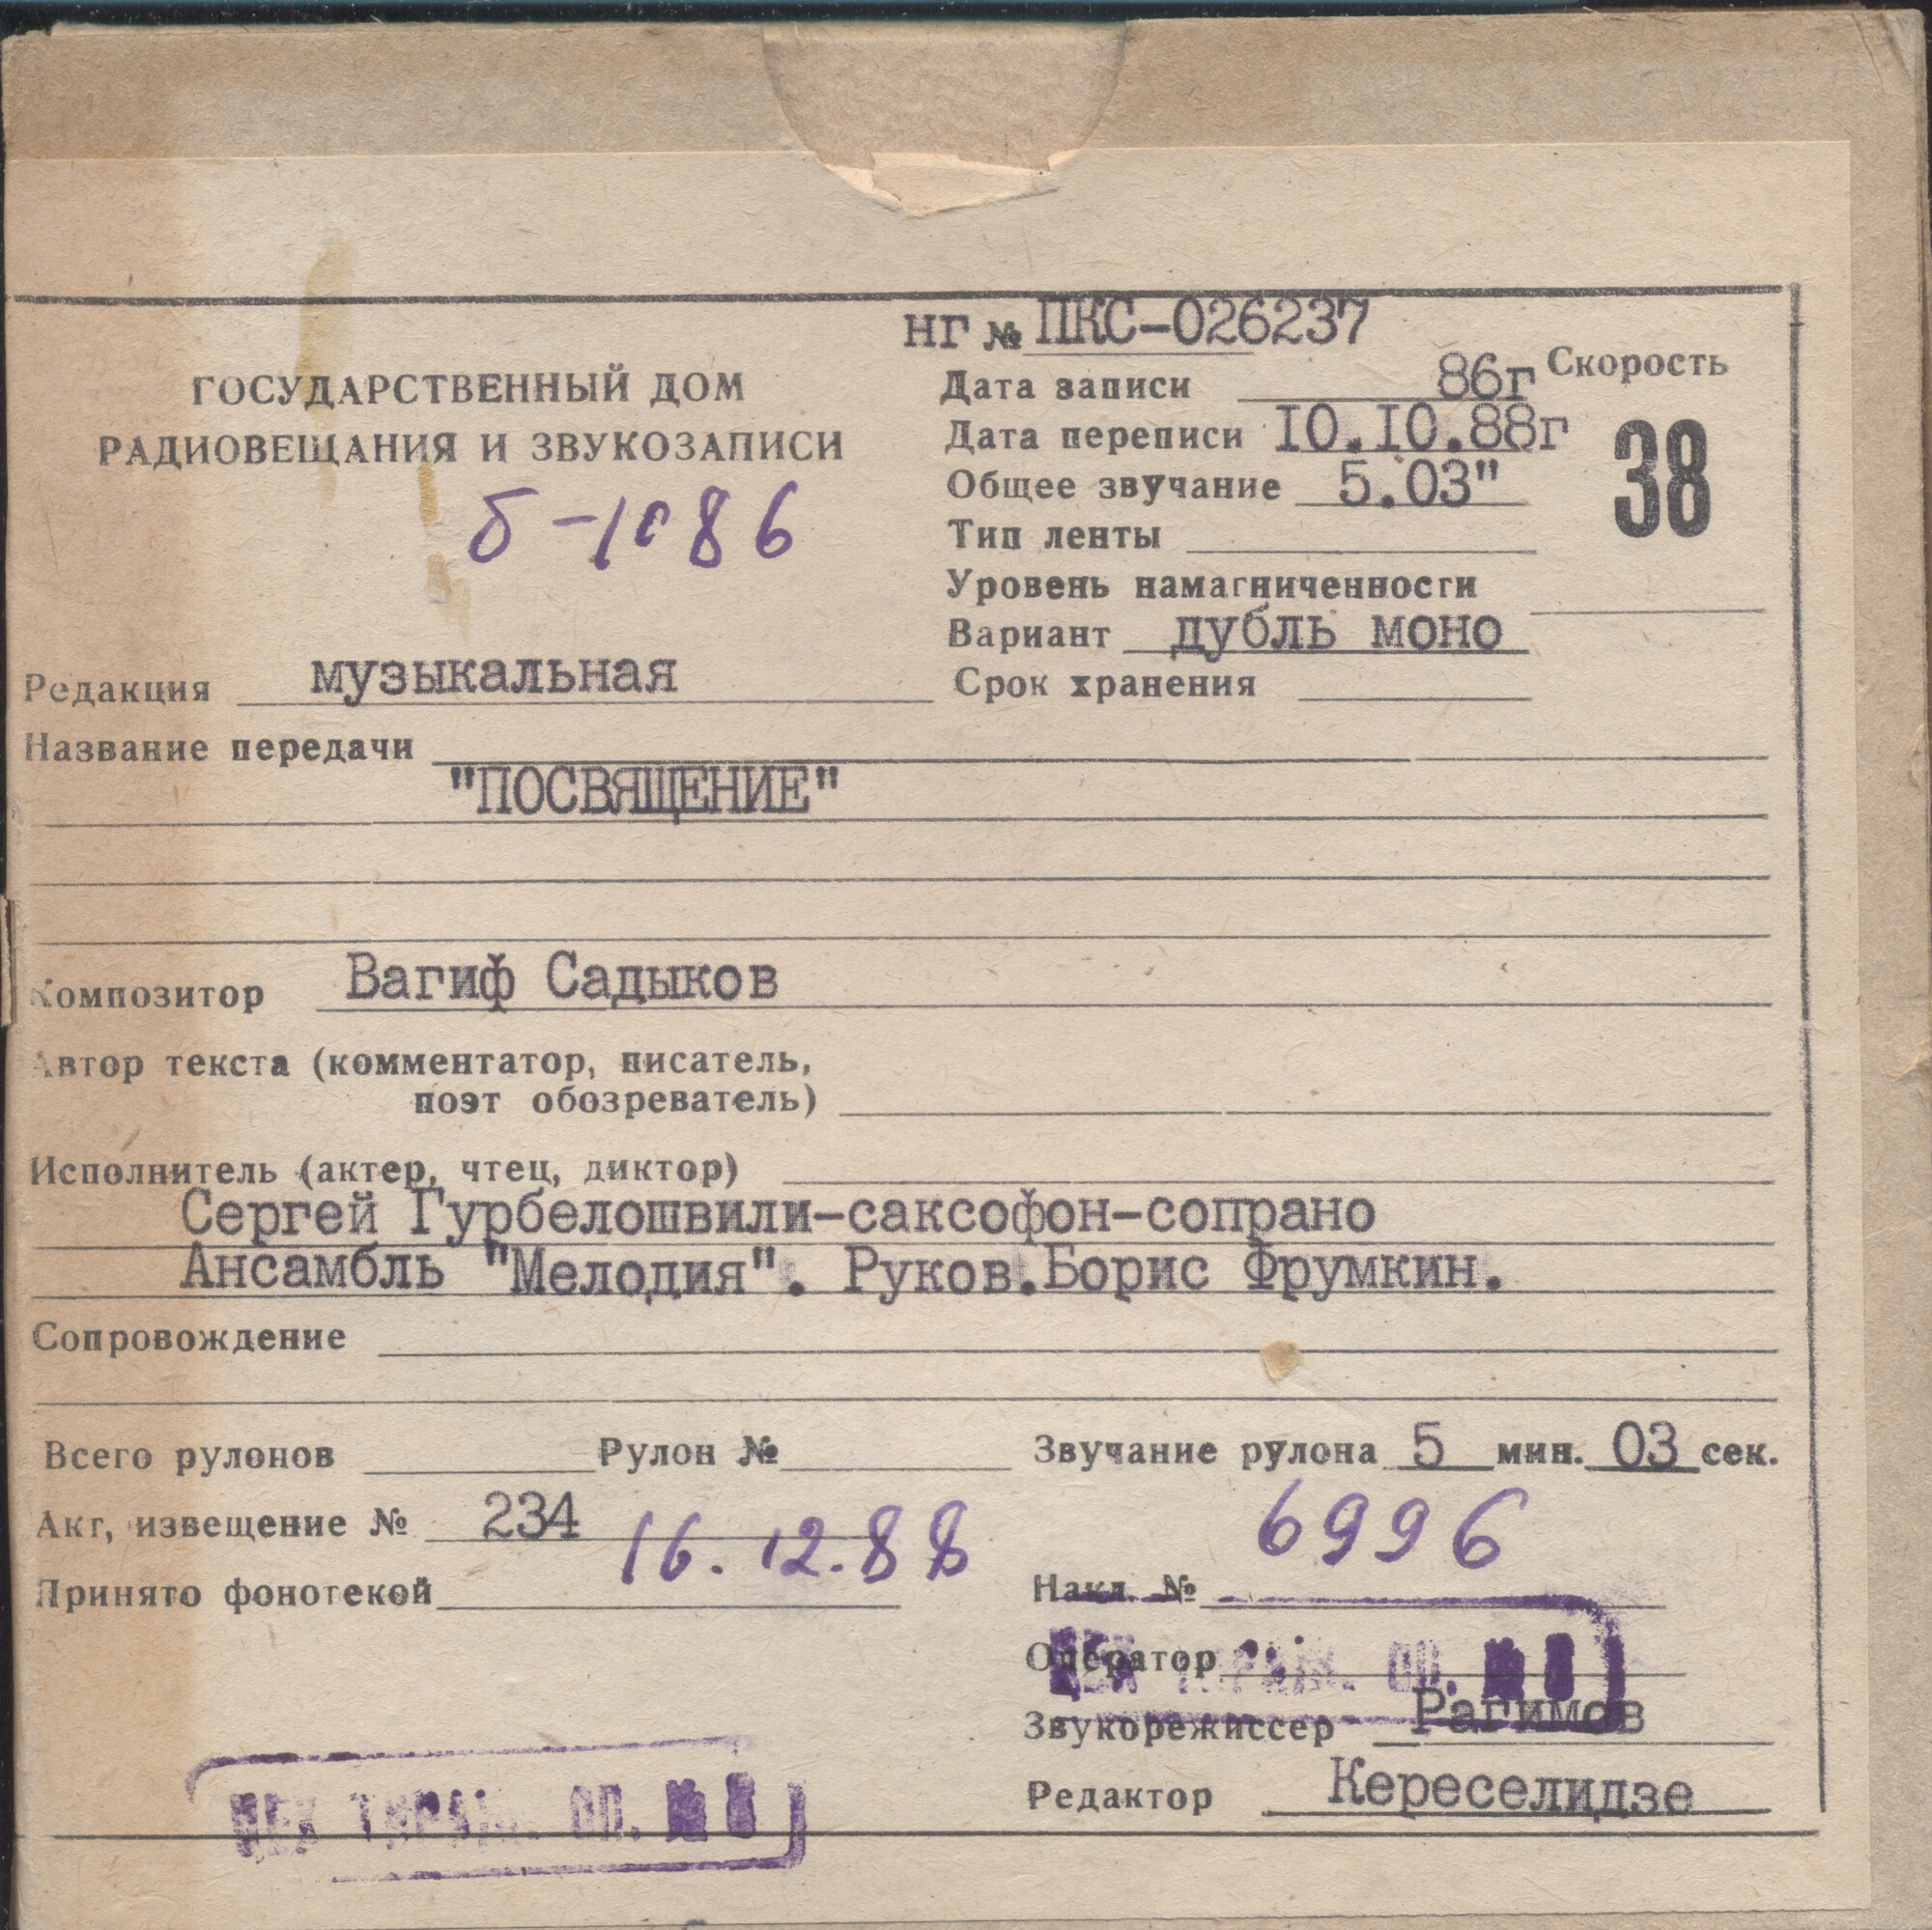 НГ № ПКС-026237
ГОСУДАРСТВЕННЫЙ ДОМ
РАДИОВЕЩАНИЯ И ЗВУКОЗАПИСИ
б-1086
Дата записи 86г
Скорость
38
Дата переписи 10.10.88г
Общее звучание 5.03"
Тип ленты
Уровень намагниченности
Вариант дубль моно
Срок хранения
Редакция музыкальная
Название передачи
"ПОСВЯЩЕНИЕ"
Композитор Вагиф Садыков
Автор текста (комментатор, писатель,
поэт обозреватель)
Исполнитель (актер, чтец, диктор)
Сергей Гурбелошвили-саксофон-сопрано
Ансамбль "Мелодия". Руков.Борис Фрумкин.
Сопровождение
Всего рулонов Рулон № Звучание рулона 5 мин. 03 сек.
Акт, извещение № 234
16.12.88
6996
Принято фонотекой
Накл. №
Оператор
Звукорежиссер Рагимов
Редактор Кереселидзе
ЦЕХ ТИРАЖ. ОП.